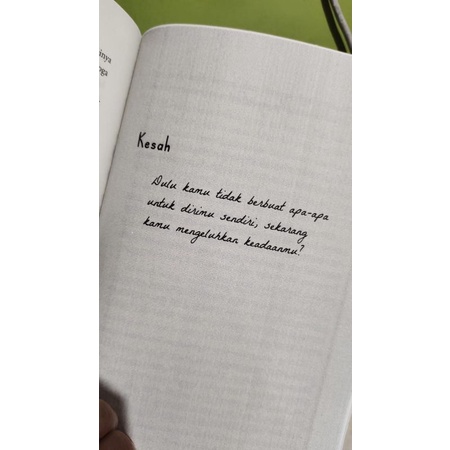 Kesah
Dulu kamu tidak berbuat apa-apa
untuk dirimu sendiri, sekarang
kamu mengeluhkan keadaanmu?